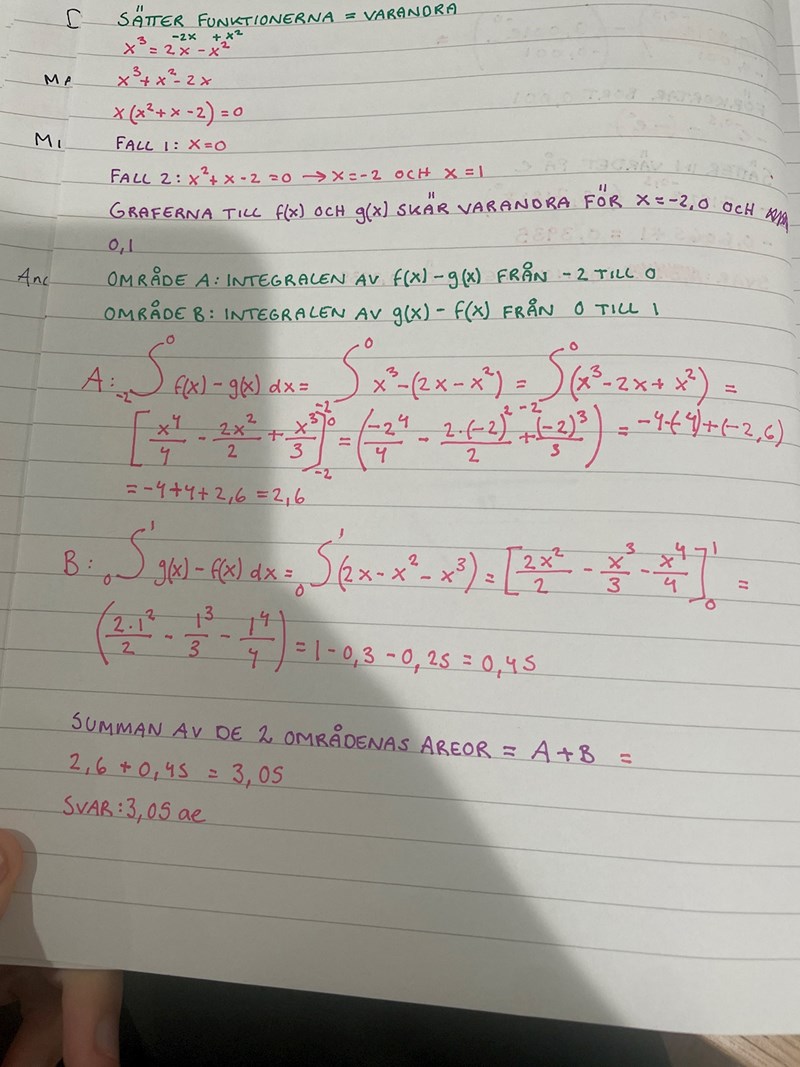 I SÄTTER FUNKTIONERNA = VARANDRA
-2x +x²
x³ = 2x - x²
x³ + x² - 2x
x(x² + x - 2) = 0
M1 FALL 1: x = 0
FALL 2: x² + x - 2 = 0 → x = -2 OCH x = 1
GRAFERNA TILL f(x) OCH g(x) SKÄR VARANDRA FÖR x = -2, 0 OCH
0, 1
OMRÅDE A: INTEGRALEN AV f(x) - g(x) FRÅN -2 TILL 0
OMRÅDE B: INTEGRALEN AV g(x) - f(x) FRÅN 0 TILL 1
A: ₋₂∫⁰ f(x) - g(x) dx = ₋₂∫⁰ x³ - (2x - x²) = ₋₂∫⁰ (x³ - 2x + x²) =
[x⁴/4 - 2x²/2 + x³/3]⁰₋₂ = (-2⁴/4 - 2·(-2)²/2 + (-2)³/3) = -4-(-4)+(-2,6)
= -4+4+2,6 = 2,6
B: ₀∫¹ g(x) - f(x) dx = ₀∫¹ (2x - x² - x³) = [2x²/2 - x³/3 - x⁴/4]¹₀ =
(2·1²/2 - 1³/3 - 1⁴/4) = 1 - 0,3 - 0,25 = 0,45
SUMMAN AV DE 2 OMRÅDENAS AREOR = A+B =
2,6 + 0,45 = 3,05
SVAR: 3,05 ae